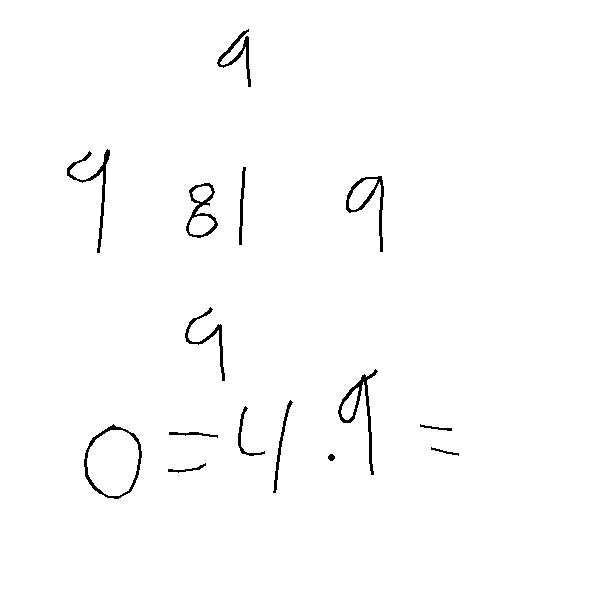 9
9 81 9
9
0 = 4 . 9 =